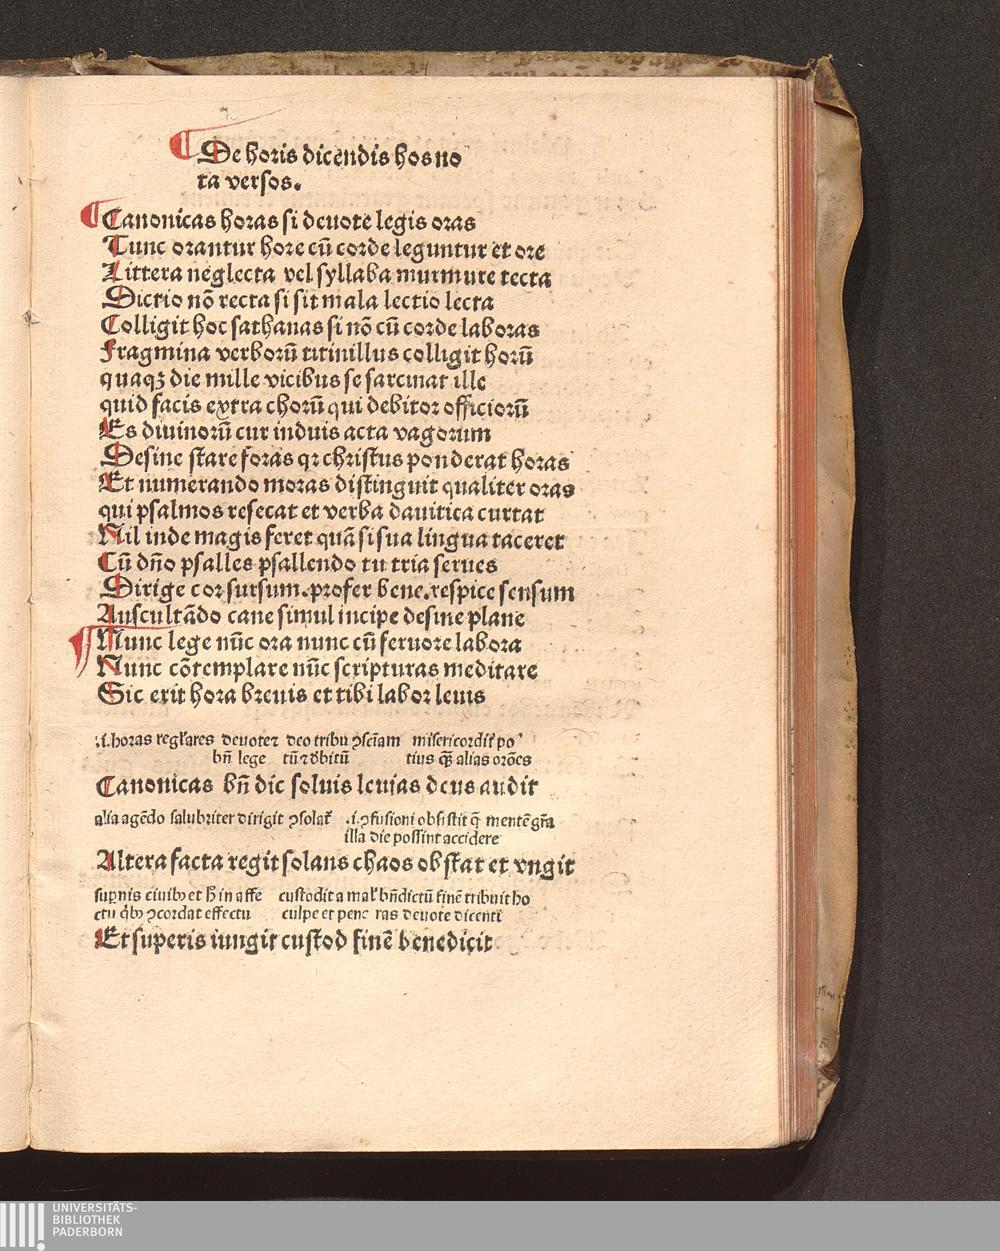 De horis dicendis hos no
ta versos.
Canonicas horas si deuote legis oras
Tunc orantur hore cū corde leguntur et ore
Littera neglecta vel syllaba murmure tecta
Dictio nō recta si sit mala lectio lecta
Colligit hoc sathanas si nō cū corde laboras
Fragmina verborū titinillus colligit horū
quaqꝫ die mille vicibus se sarcinat ille
quid facis extra chorū qui debitor officiorū
Es diuinorū cur induis acta vagorum
Desine stare foras qꝛ christus ponderat horas
Et numerando moras distinguit qualiter oras
qui psalmos resecat et verba dauitica curtat
Nil inde magis feret quā si sua lingua taceret
Cū dn̄o psalles psallendo tu tria serues
Dirige cor sursum.profer bene.respice sensum
Auscultādo cane simul incipe desine plane
Nunc lege nūc ora nunc cū feruore labora
Nunc cōtemplare nūc scripturas meditare
Sic erit hora breuis et tibi labor leuis
.i.horas regl'ares deuote⁊ deo tribu ꝯsciā̄m misericordit' po'
bn̄ lege tū⁊ dbitū tius qꝫ alias orōes
Canonicas bn̄ dic soluis leuias deus audit
alia agēdo salubriter dirigit ꝯsolat' .i.ꝯfusioni obsistit q̄ mentē gr̄a
illa die possint accidere
Altera facta regit solans chaos obstat et vngit
sup̄nis ciuibꝰ et h̄ in affe custodit a mal' bn̄dictū finē tribuit ho
ctu qb' ꝯcordat effectu culpe et pene ras deuote dicenti
Et superis iungit custod finē benedicit
UNIVERSITÄTS-
BIBLIOTHEK
PADERBORN